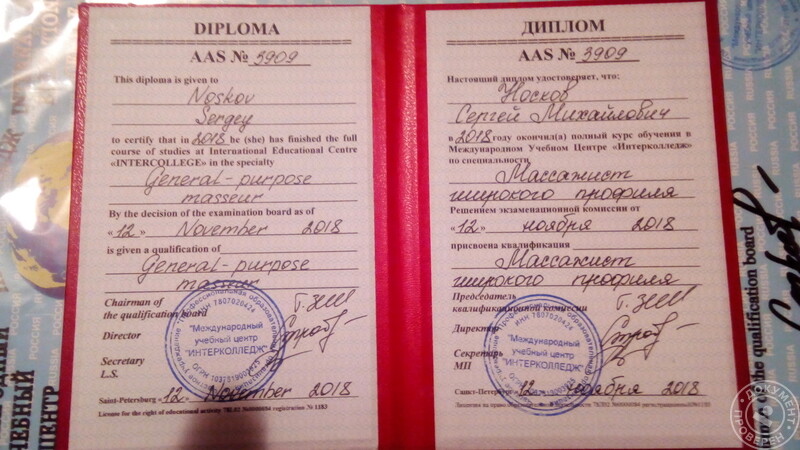 DIPLOMA
AAS № 3909
This diploma is given to
Noskov
Sergey
to certify that in 2018 he (she) has finished the full
course of studies at International Educational Centre
«INTERCOLLEGE» in the specialty
General-purpose
masseur
By the decision of the examination board as of
«12» November 2018
is given a qualification of
General-purpose
masseur
Chairman of
the qualification board
Director
Secretary
L.S.
Saint-Petersburg «12» November 2018
License for the right of educational activity 78Л02 №0000084 registration № 1183
"Международный
учебный центр
"ИНТЕРКОЛЛЕДЖ"
ДИПЛОМ
AAS № 3909
Настоящий диплом удостоверяет, что:
Носков
Сергей Михайлович
в 2018 году окончил(а) полный курс обучения в
Международном Учебном Центре «Интерколледж»
по специальности
Массажист
широкого профиля
Решением экзаменационной комиссии от
«12» ноября 2018
присвоена квалификация
Массажист
широкого профиля
Председатель
квалификационной комиссии
Директор
Секретарь
МП
Санкт-Петербург «12» ноября 2018
"Международный
учебный центр
"ИНТЕРКОЛЛЕДЖ"
of the qualification board
ЦЕНТР
ДОКУМЕНТ
ПРОВЕРЕН